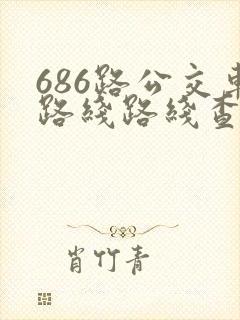 686路公交车
路线路线查
肖竹青